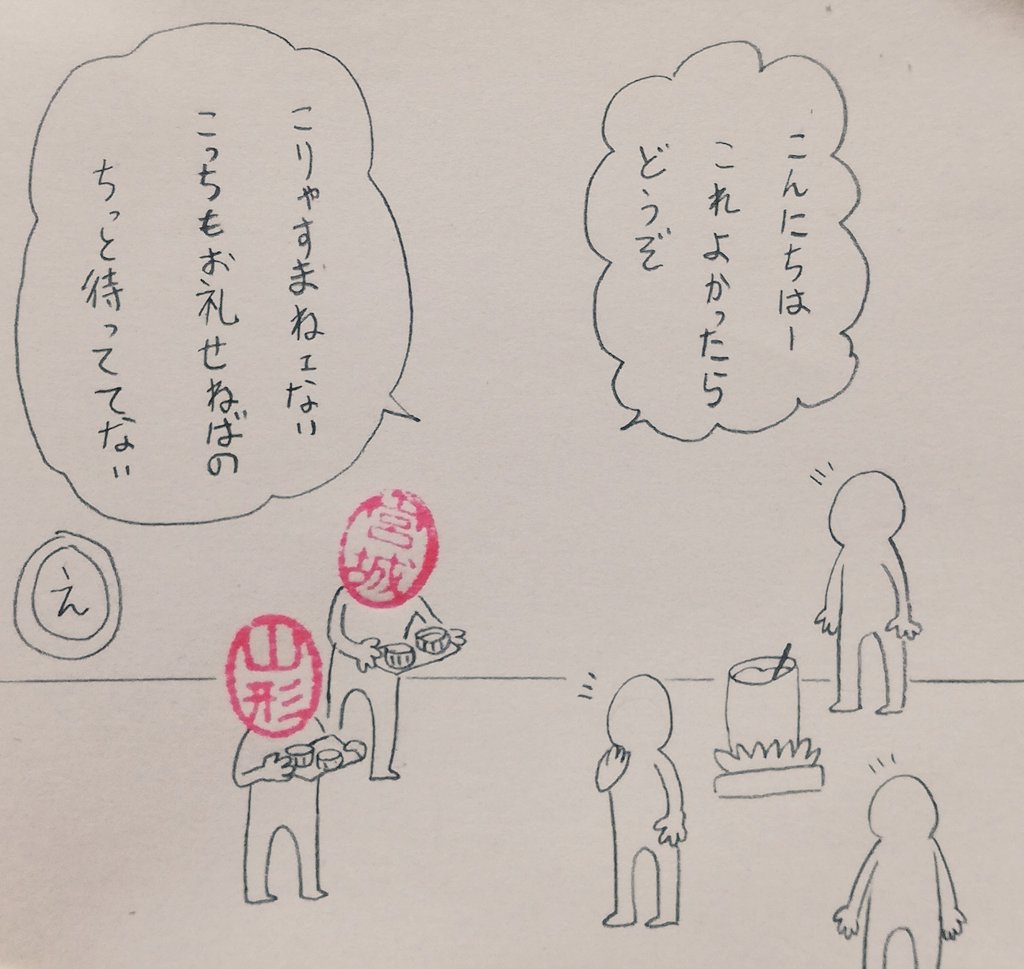 こんにちはー
これよかったら
どうぞ
こりゃすまねェない
こっちもお礼せねばの
ちっと待っててない
え
宮城
山形